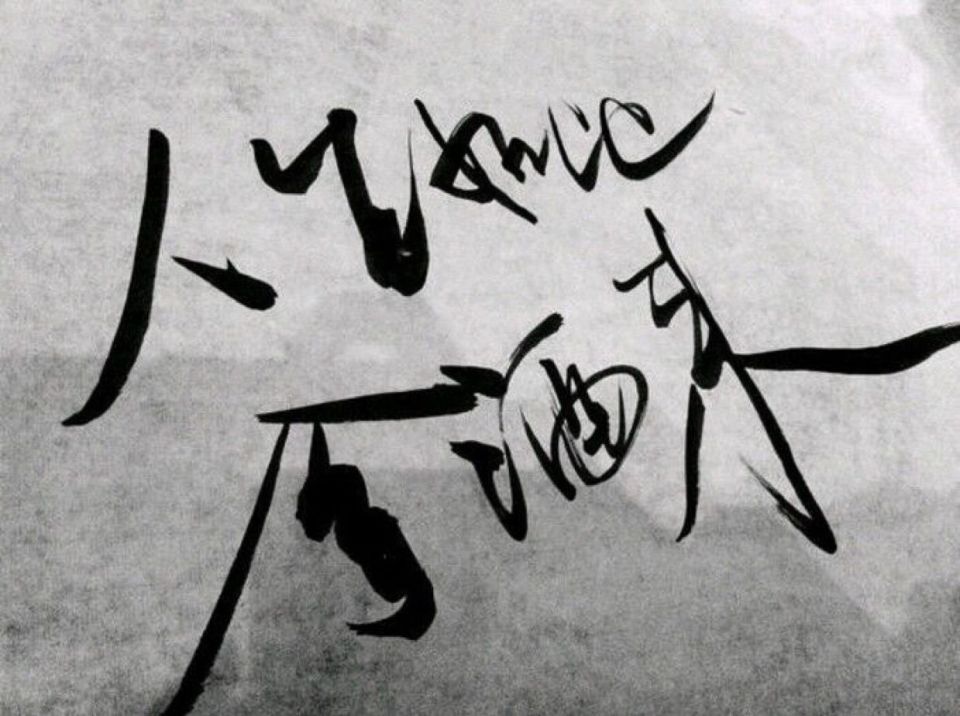 人生如此
有酒